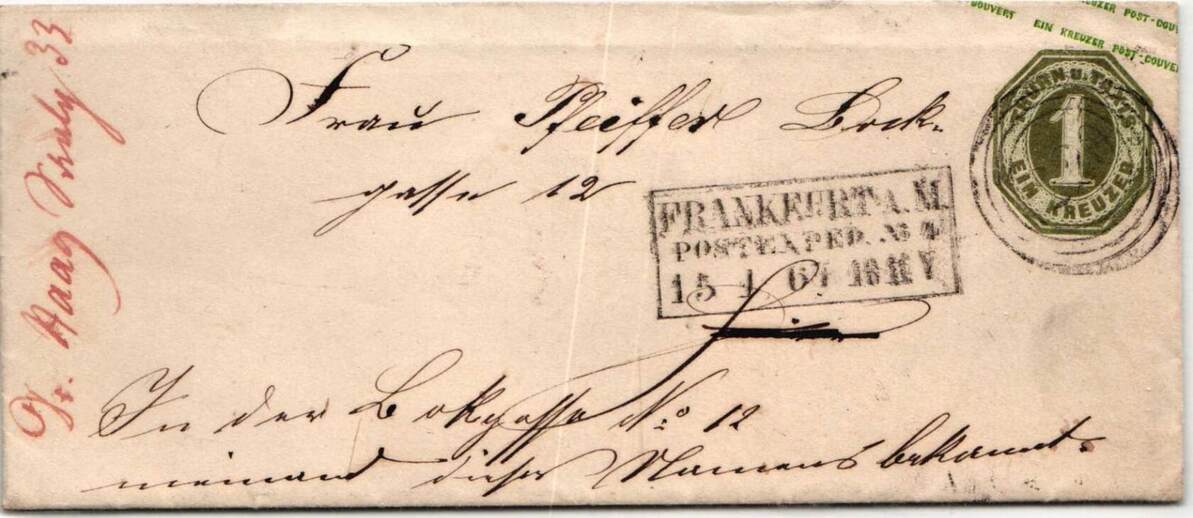 COUVERT EIN KREUZER POST-COUV
EIN KREUZER POST-COUVER
THURN U. TAXIS
1
EIN KREUZER
Frau Pfeiffer Bock-
gasse 12
FRANKFURT A. M.
POSTEXPED. № 4
15 1 67
In der Bokgasse No. 12
niemand dieses Namens bekannt.
Haag
33